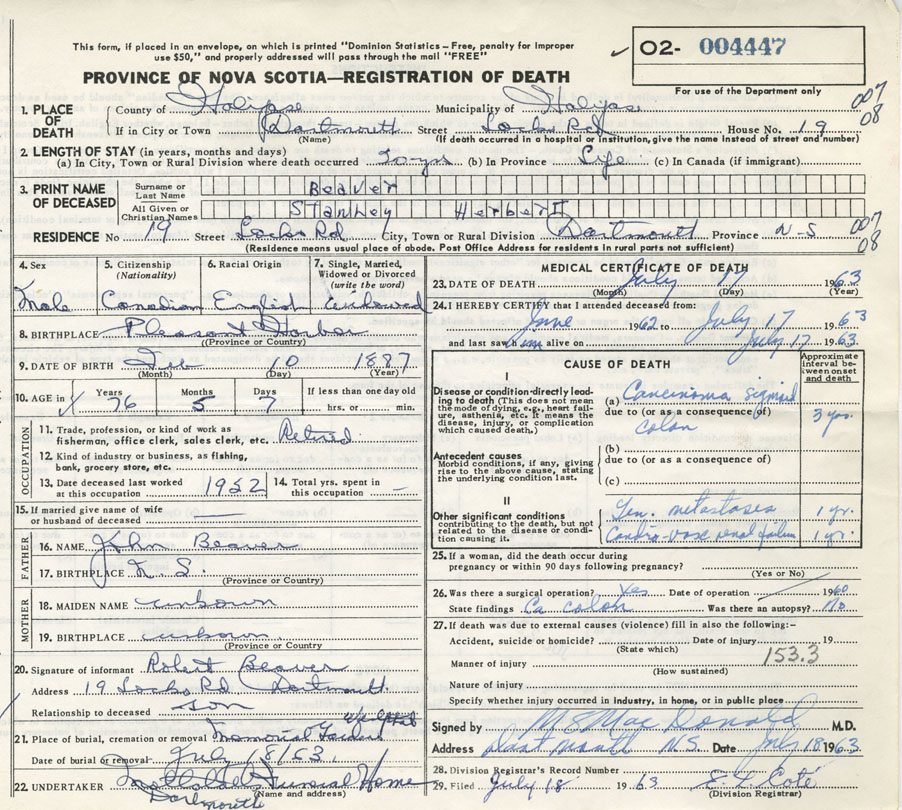 This form, if placed in an envelope, on which is printed "Dominion Statistics – Free, penalty for improper
use $50," and properly addressed will pass through the mail "FREE"
✓ O2- 004447
For use of the Department only
PROVINCE OF NOVA SCOTIA—REGISTRATION OF DEATH
007
08
1. PLACE OF DEATH
County of Halifax Municipality of Halifax
If in City or Town Dartmouth Street Locks Rd House No. 19
(Name) (If death occurred in a hospital or institution, give the name instead of street and number)
2. LENGTH OF STAY (in years, months and days)
(a) In City, Town or Rural Division where death occurred (b) In Province Life (c) In Canada (if immigrant)
3. PRINT NAME OF DECEASED
Surname or Last Name Beaver
All Given or Christian Names Stanley Herbert
RESIDENCE No 19 Street Locks Rd City, Town or Rural Division Dartmouth Province N-S
007
08
(Residence means usual place of abode. Post Office Address for residents in rural parts not sufficient)
4. Sex Male
5. Citizenship (Nationality) Canadian
6. Racial Origin English
7. Single, Married, Widowed or Divorced (write the word) widowed
8. BIRTHPLACE Pleasant Harbor
(Province or Country)
9. DATE OF BIRTH 10 1887
(Month) (Day) (Year)
10. AGE in Years 76 Months 5 Days 7 If less than one day old hrs. or min.
OCCUPATION
11. Trade, profession, or kind of work as fisherman, office clerk, sales clerk, etc. Retired
12. Kind of industry or business, as fishing, bank, grocery store, etc.
13. Date deceased last worked at this occupation 1952
14. Total yrs. spent in this occupation —
15. If married give name of wife or husband of deceased —
FATHER
16. NAME John Beaver
17. BIRTHPLACE N.S.
(Province or Country)
MOTHER
18. MAIDEN NAME unknown
19. BIRTHPLACE unknown
(Province or Country)
20. Signature of informant Robert Beaver
Address 19 Locks Rd Dartmouth
Relationship to deceased son
21. Place of burial, cremation or removal Memorial
Date of burial or removal July 18/63
22. UNDERTAKER Funeral Home
Dartmouth (Name and address)
MEDICAL CERTIFICATE OF DEATH
23. DATE OF DEATH July 17 1963
(Month) (Day) (Year)
24. I HEREBY CERTIFY that I attended deceased from:
June 1962 to July 17 1963
and last saw him alive on July 17 1963.
CAUSE OF DEATH
Approximate interval between onset and death
I
Disease or condition directly leading to death (This does not mean the mode of dying, e.g., heart failure, asthenia, etc. It means the disease, injury, or complication which caused death.)
(a) Carcinoma sigmoid
due to (or as a consequence of) 3 yrs.
colon
Antecedent causes
Morbid conditions, if any, giving rise to the above cause, stating the underlying condition last.
(b)
due to (or as a consequence of)
(c)
II
Other significant conditions contributing to the death, but not related to the disease or condition causing it.
Gen. metastases 1 yr.
Cardio-vasc renal failure 1 yr.
25. If a woman, did the death occur during pregnancy or within 90 days following pregnancy?
(Yes or No)
26. Was there a surgical operation? Yes Date of operation 1960
State findings Ca colon Was there an autopsy? No
27. If death was due to external causes (violence) fill in also the following:–
Accident, suicide or homicide? Date of injury 19
(State which)
153.3
Manner of injury
(How sustained)
Nature of injury
Specify whether injury occurred in industry, in home, or in public place
Signed by MacDonald M.D.
Address Dartmouth N.S. Date July 18 1963.
28. Division Registrar's Record Number
29. Filed July 18 1963 Coté
(Division Registrar)